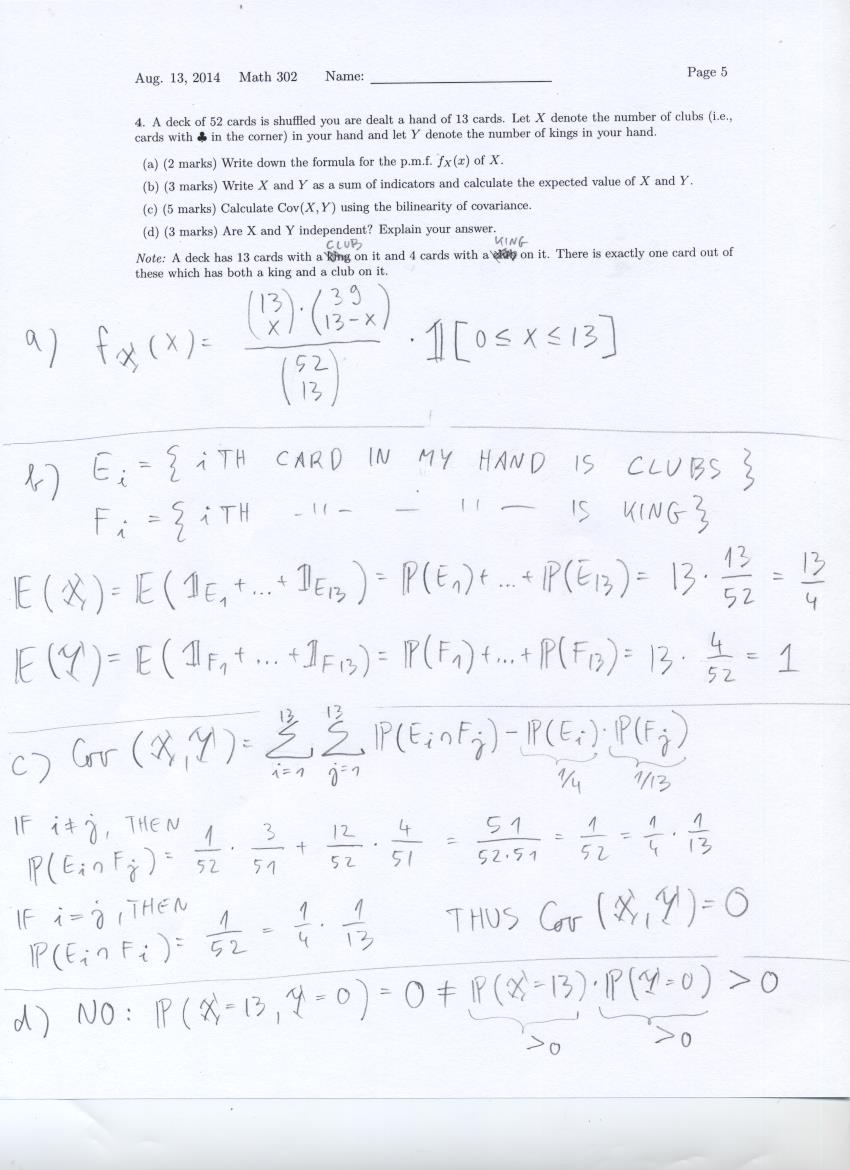 Aug. 13, 2014 Math 302 Name: ____________ Page 5
4. A deck of 52 cards is shuffled you are dealt a hand of 13 cards. Let X denote the number of clubs (i.e.,
cards with ♣ in the corner) in your hand and let Y denote the number of kings in your hand.
(a) (2 marks) Write down the formula for the p.m.f. f_X(x) of X.
(b) (3 marks) Write X and Y as a sum of indicators and calculate the expected value of X and Y.
(c) (5 marks) Calculate Cov(X, Y) using the bilinearity of covariance.
(d) (3 marks) Are X and Y independent? Explain your answer.
CLUB KING
Note: A deck has 13 cards with a king on it and 4 cards with a club on it. There is exactly one card out of
these which has both a king and a club on it.
a) f_X(x) = (13 choose x) · (39 choose 13-x) / (52 choose 13) · 𝟙[0 ≤ x ≤ 13]
b) E_i = { iTH CARD IN MY HAND IS CLUBS }
F_i = { iTH -"- — " — IS KING }
𝔼(X) = 𝔼(𝟙_E_1 + ... + 𝟙_E_13) = ℙ(E_1) + ... + ℙ(E_13) = 13 · 13/52 = 13/4
𝔼(Y) = 𝔼(𝟙_F_1 + ... + 𝟙_F_13) = ℙ(F_1) + ... + ℙ(F_13) = 13 · 4/52 = 1
c) Cov(X, Y) = Σ_{i=1}^{13} Σ_{j=1}^{13} ℙ(E_i ∩ F_j) - ℙ(E_i) · ℙ(F_j)
1/4 1/13
IF i ≠ j, THEN
ℙ(E_i ∩ F_j) = 1/52 · 3/51 + 12/52 · 4/51 = 51/52·51 = 1/52 = 1/4 · 1/13
IF i = j, THEN
ℙ(E_i ∩ F_i) = 1/52 = 1/4 · 1/13 THUS Cov(X, Y) = 0
d) NO: ℙ(X = 13, Y = 0) = 0 ≠ ℙ(X = 13) · ℙ(Y = 0) > 0
>0 >0